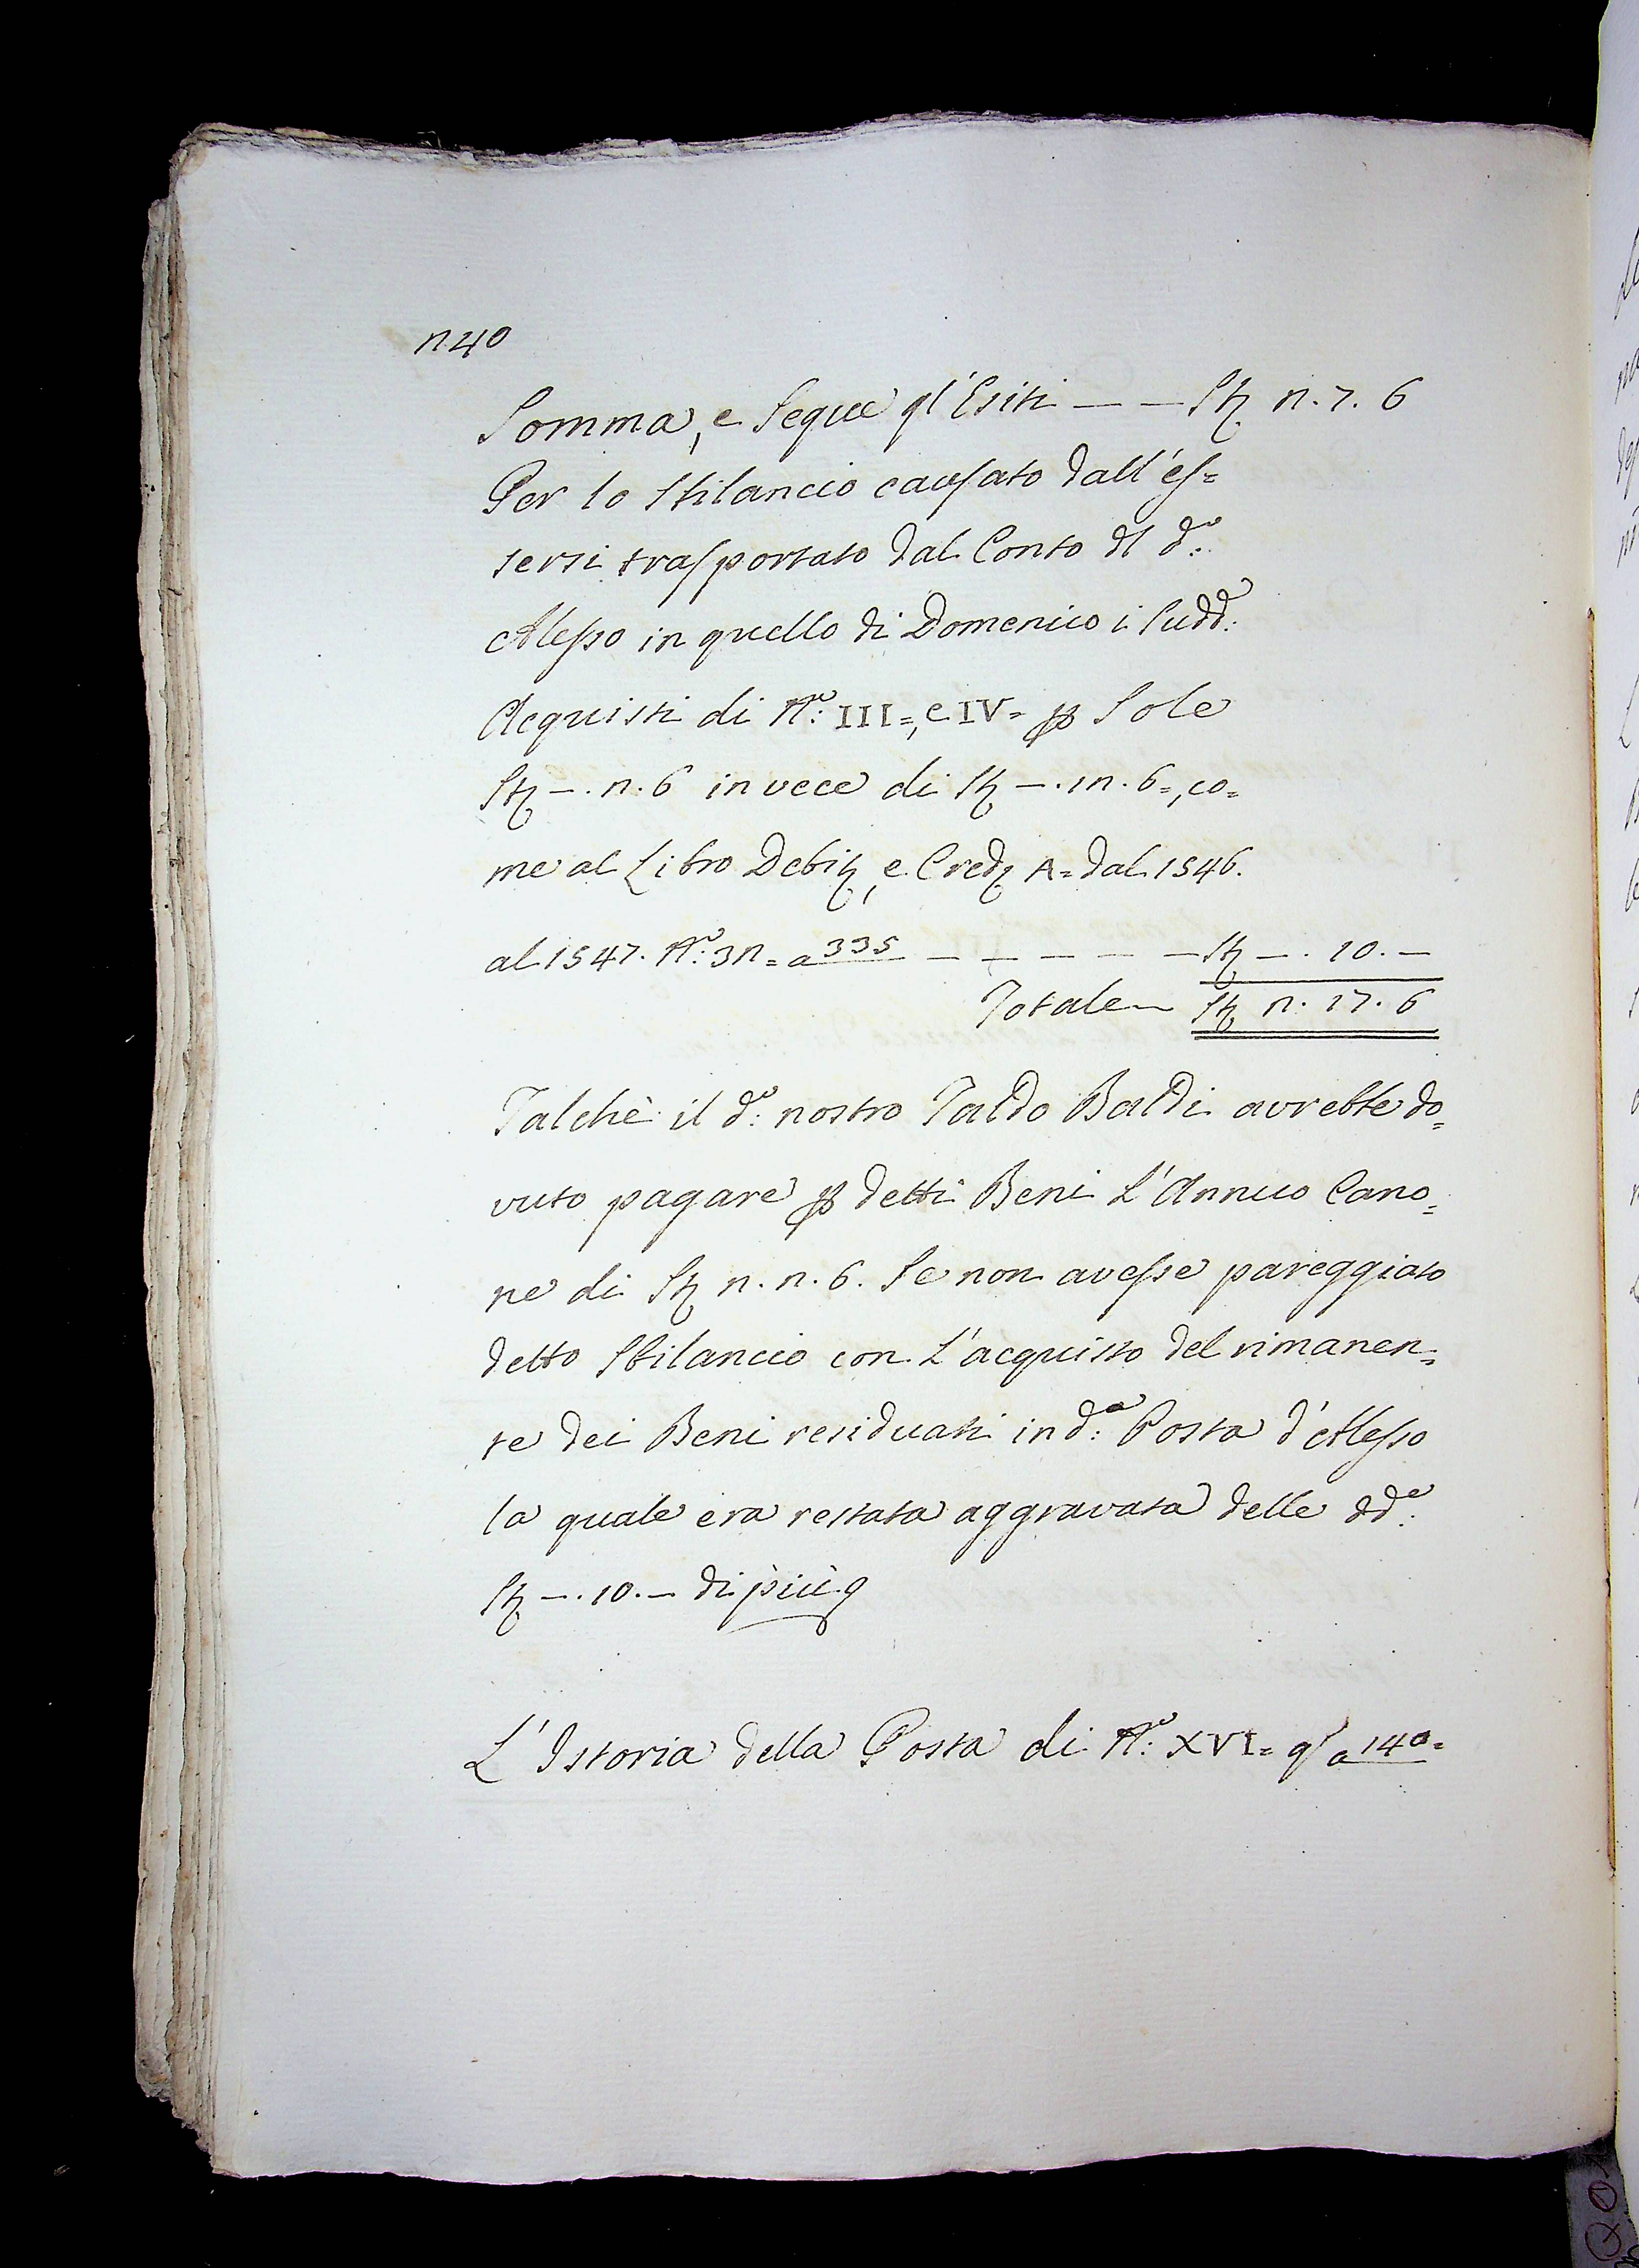 240
Somma, e Segue gl'Esiti — — St 2. 7. 6
Per lo Sbilancio causato dall'es=
sersi trasportato dal Conto dl d.º
Alesso in quello di Domenico i Sudd.ⁱ
Acquisti di N.º III=, e IV= ꝑ Sole
St —. 2. 6 in vece di St —. 12. 6=, co=
me al Libro Debit, e Cred A= dal 1546.
al 1547. N.º 32= a 335 — — — — — St —. 10. —
Totale — St 2. 17. 6
Talchè il d.º nostro Taldo Baldi avrebbe do=
vuto pagare ꝑ detti Beni L'Annuo Cano=
ne di St 2. 2. 6. Se non avesse pareggiato
detto Sbilancio con L'acquisto del rimanen=
te dei Beni residuati in d.ª Posta d'Alesso
la quale era restata aggravata delle dd.ᵉ
St —. 10. — di più
L'Istoria della Posta di N.º XVI= a 140=